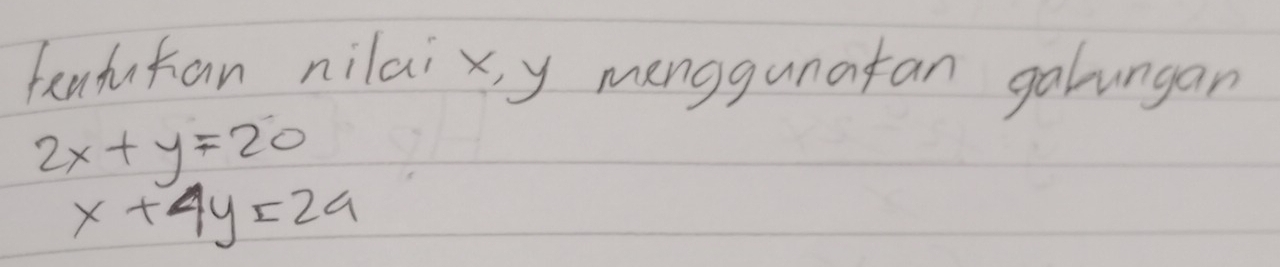 tentukan nilai x, y menggunakan gabungan
2x + y = 20
x + 4y = 29